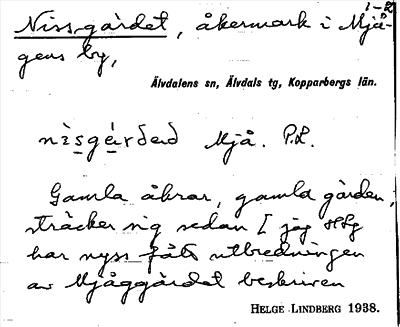 i-2
Nissgärdet, åkermark i Mjå-
gens by,
Älvdalens sn, Älvdals tg, Kopparbergs län.
nìsgä́rdəd Mjå. P.L.
Gamla åkrar, gamla gården,
sträcker sig sedan [jag
har nyss fått utbredningen
av Mjåggärdet beskriven
HELGE LINDBERG 1938.